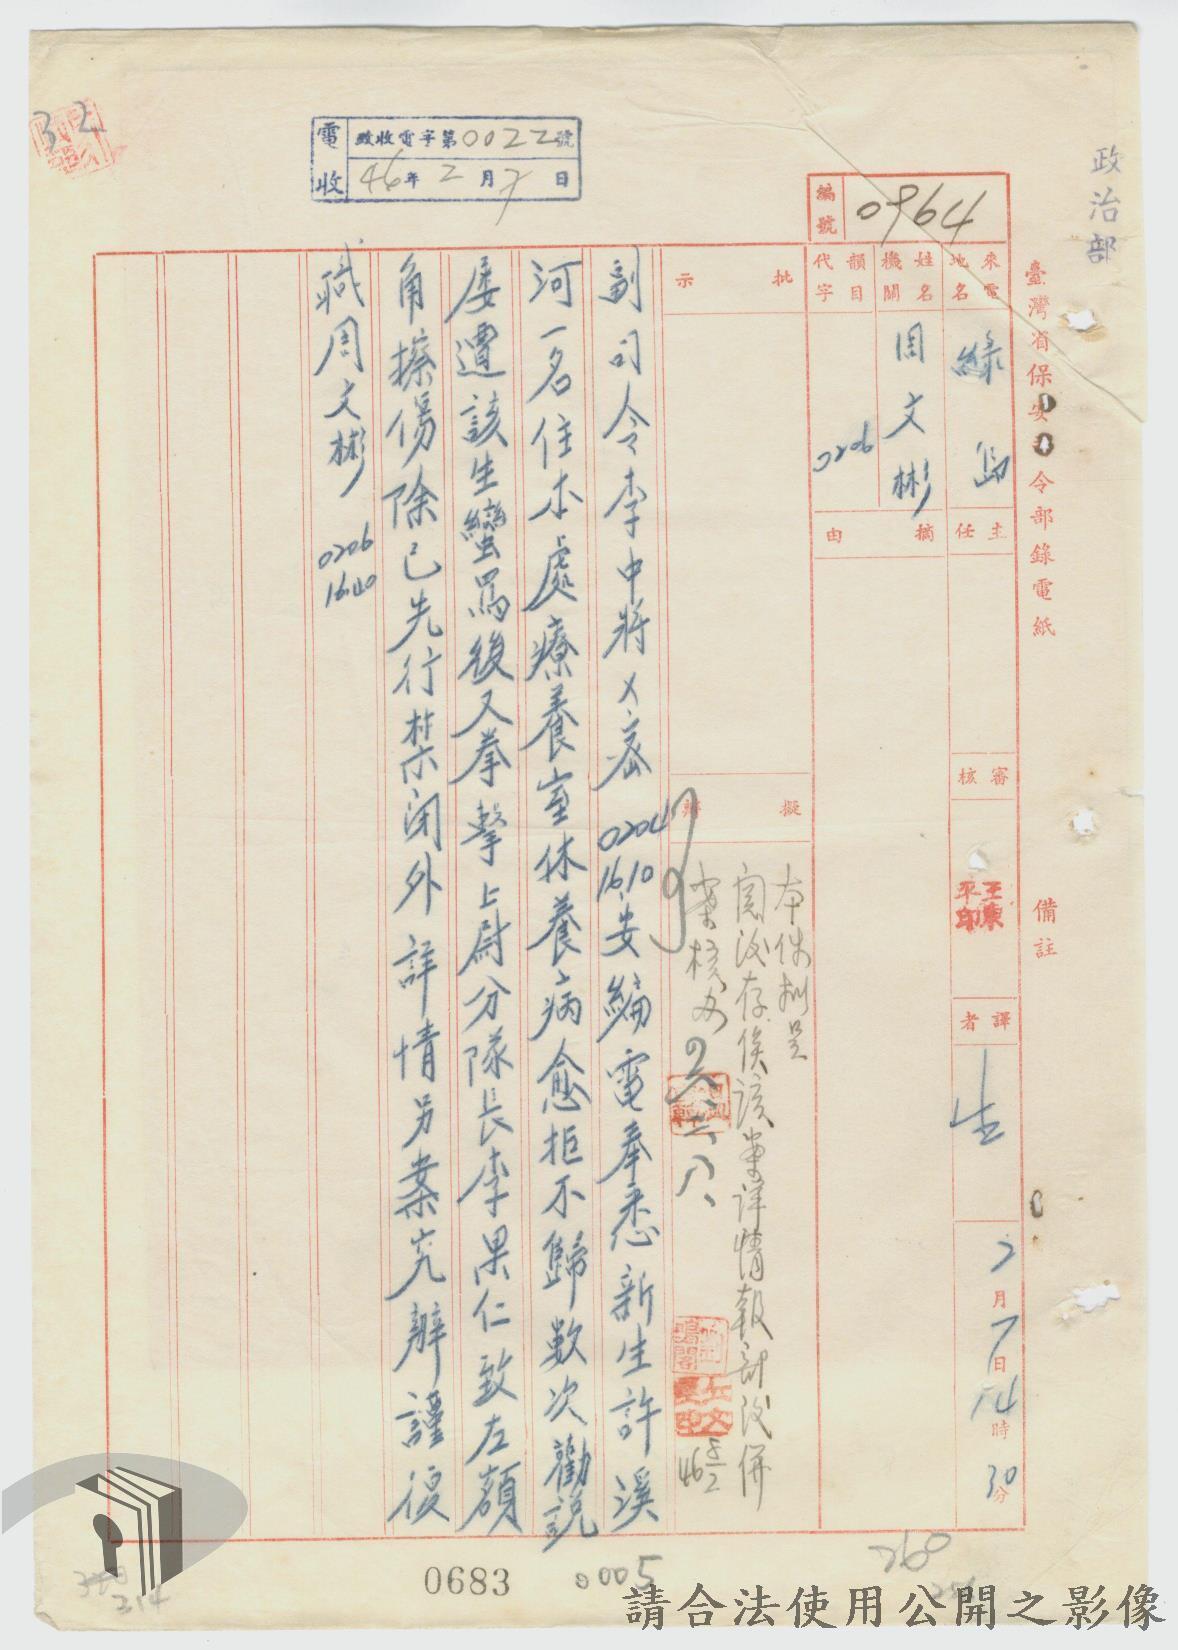 政治部
臺灣省保安司令部錄電紙
備註
電收
致收電字第0022號
46年2月7日
編號
0964
來電地名
綠島
姓名機關
周文彬
韻目代字
0206
主任
摘由
審核
王東平印
譯者
生
2月7日14時30分
批示
擬辦
本件擬呈
閱後存俟該案詳情報部後併
案核辦
副司令李中將乂密020416.10安編電奉悉新生許溪
河一名住本處療養室休養病愈拒不歸數次勸說
屡遭該生蠻罵後又拳擊上尉分隊長李果仁致左額
角擦傷除已先行禁闭外詳情另案究辦謹復
職周文彬 0206 1640
32
0683
0005
260
214
請合法使用公開之影像